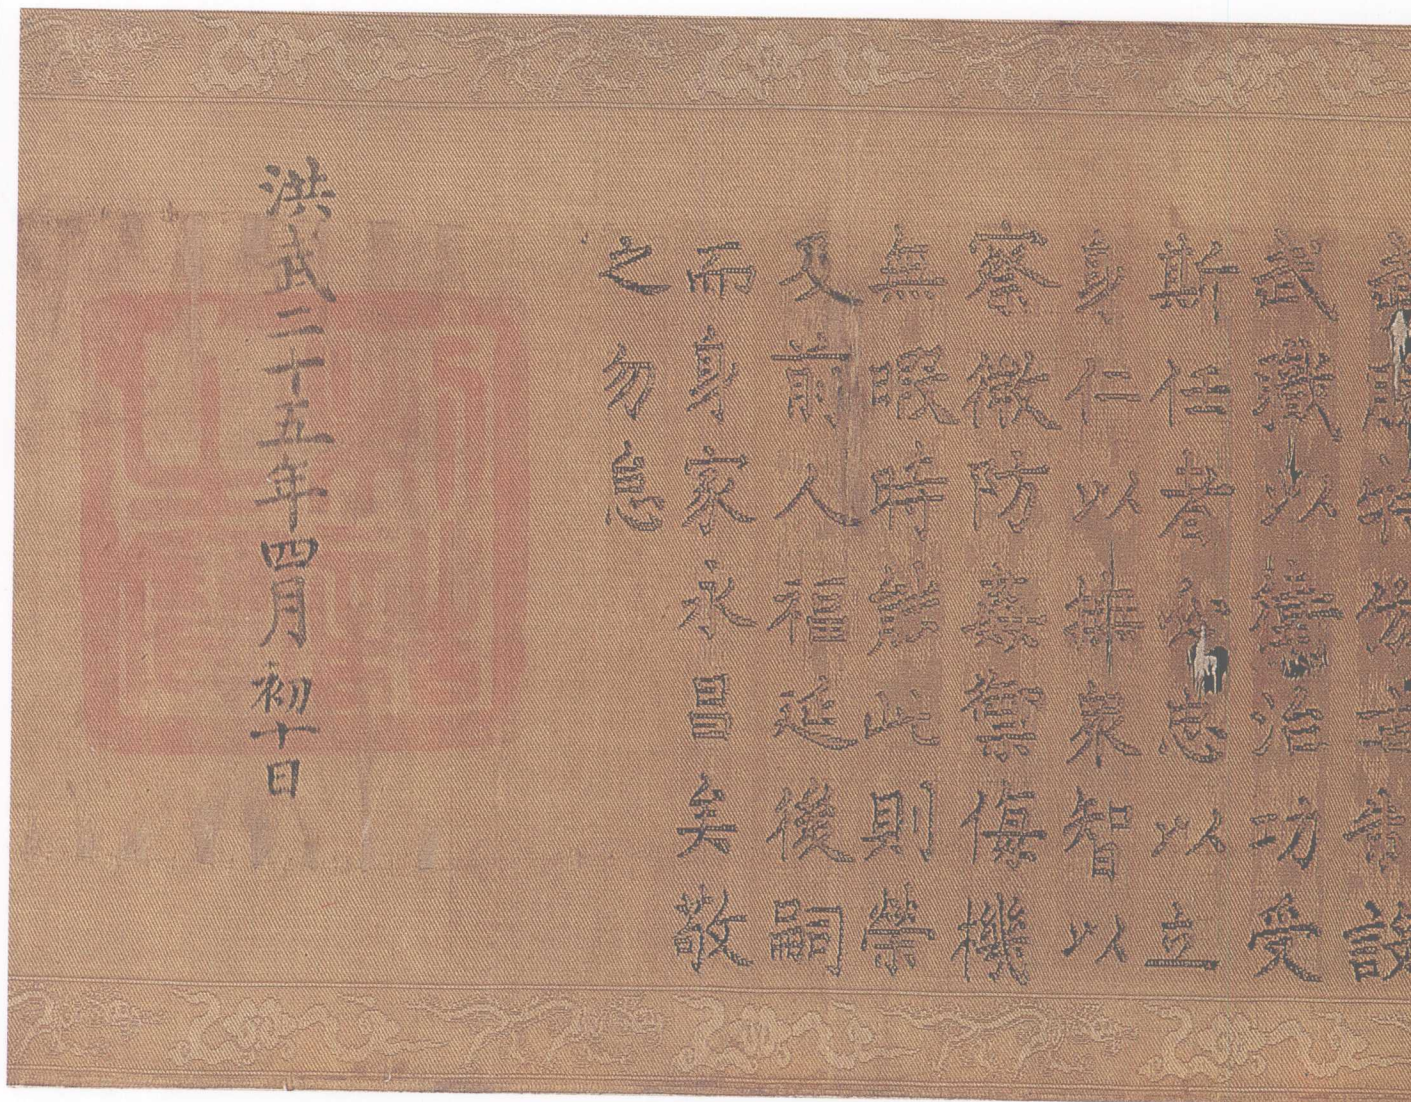 特
設
武職以衛治功受
斯任者必忠以立
身仁以撫衆智以
察微防姦禦侮機
無暇時能此則榮
及前人福延後嗣
而身家永昌矣敬
之勿怠
洪武二十五年四月初十日